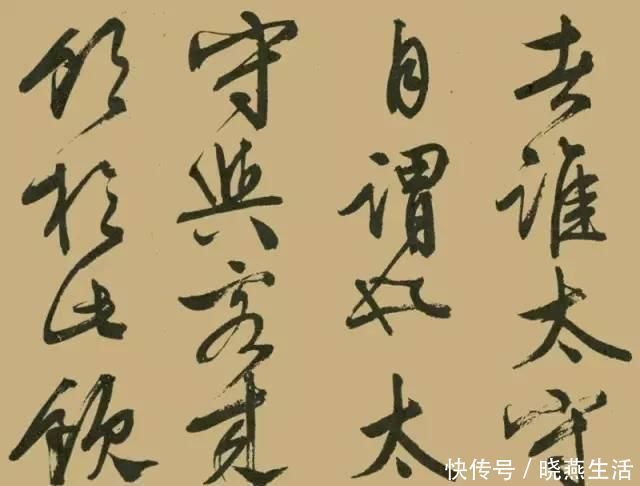 者誰太守
自謂也太
守與客来
飲於此飲
快传号 / 晓燕生活